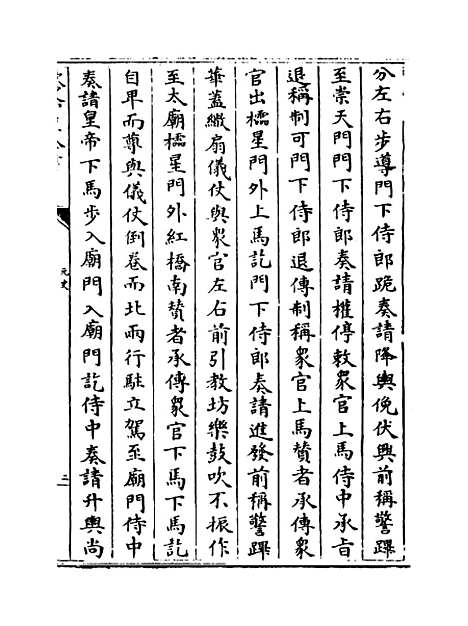 分左右步導門下侍郎跪奏請降輿俛伏興前稱警蹕
至崇天門門下侍郎奏請權停敕眾官上馬侍中承旨
退稱制可門下侍郎退傳制稱眾官上馬贊者承傳眾
官出櫺星門外上馬訖門下侍郎奏請進發前稱警蹕
華蓋繖扇儀仗與眾官左右前引教坊樂鼓吹不振作
至太廟櫺星門外紅橋南贊者承傳眾官下馬下馬訖
自卑而尊與儀仗倒卷而北兩行駐立駕至廟門侍中
奏請皇帝下馬步入廟門入廟門訖侍中奏請升輿尚
元史
三